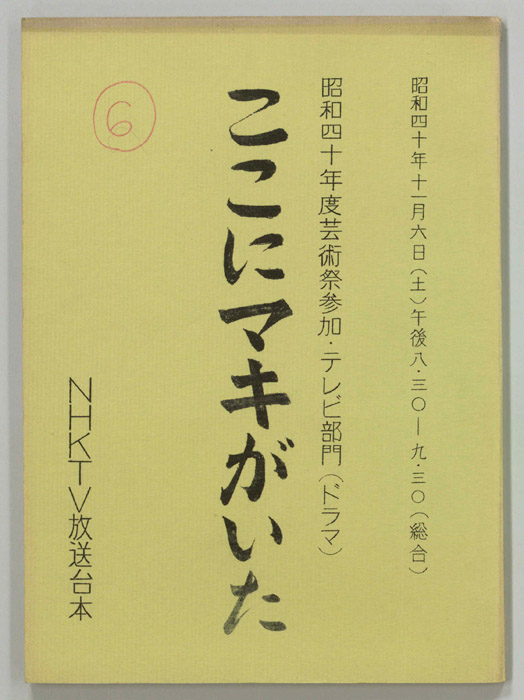 昭和四十年十一月六日(土)午後八・三〇―九・三〇(総合)
昭和四十年度芸術祭参加・テレビ部門(ドラマ)
ここにマキがいた
6
NHKTV放送台本